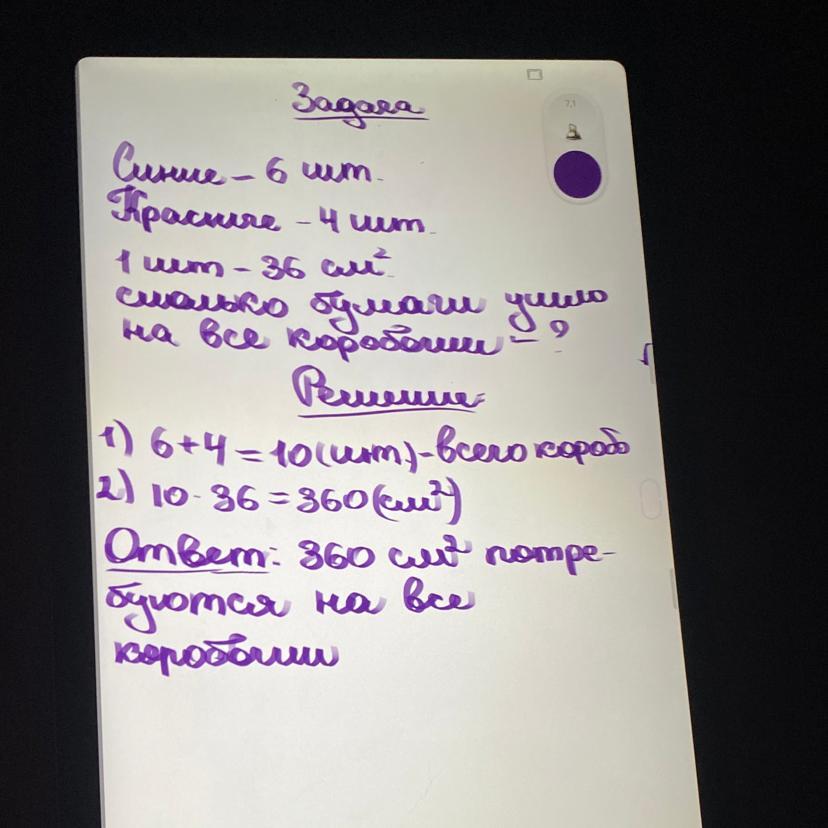 7,1
Задача
Синие - 6 шт.
Красные - 4 шт.
1 шт - 36 см²
сколько бумаги ушло
на все коробочки - ?
Решение:
1) 6+4=10(шт)-всего короб
2) 10·36=360(см²)
Ответ: 360 см² потре-
буются на все
коробочки